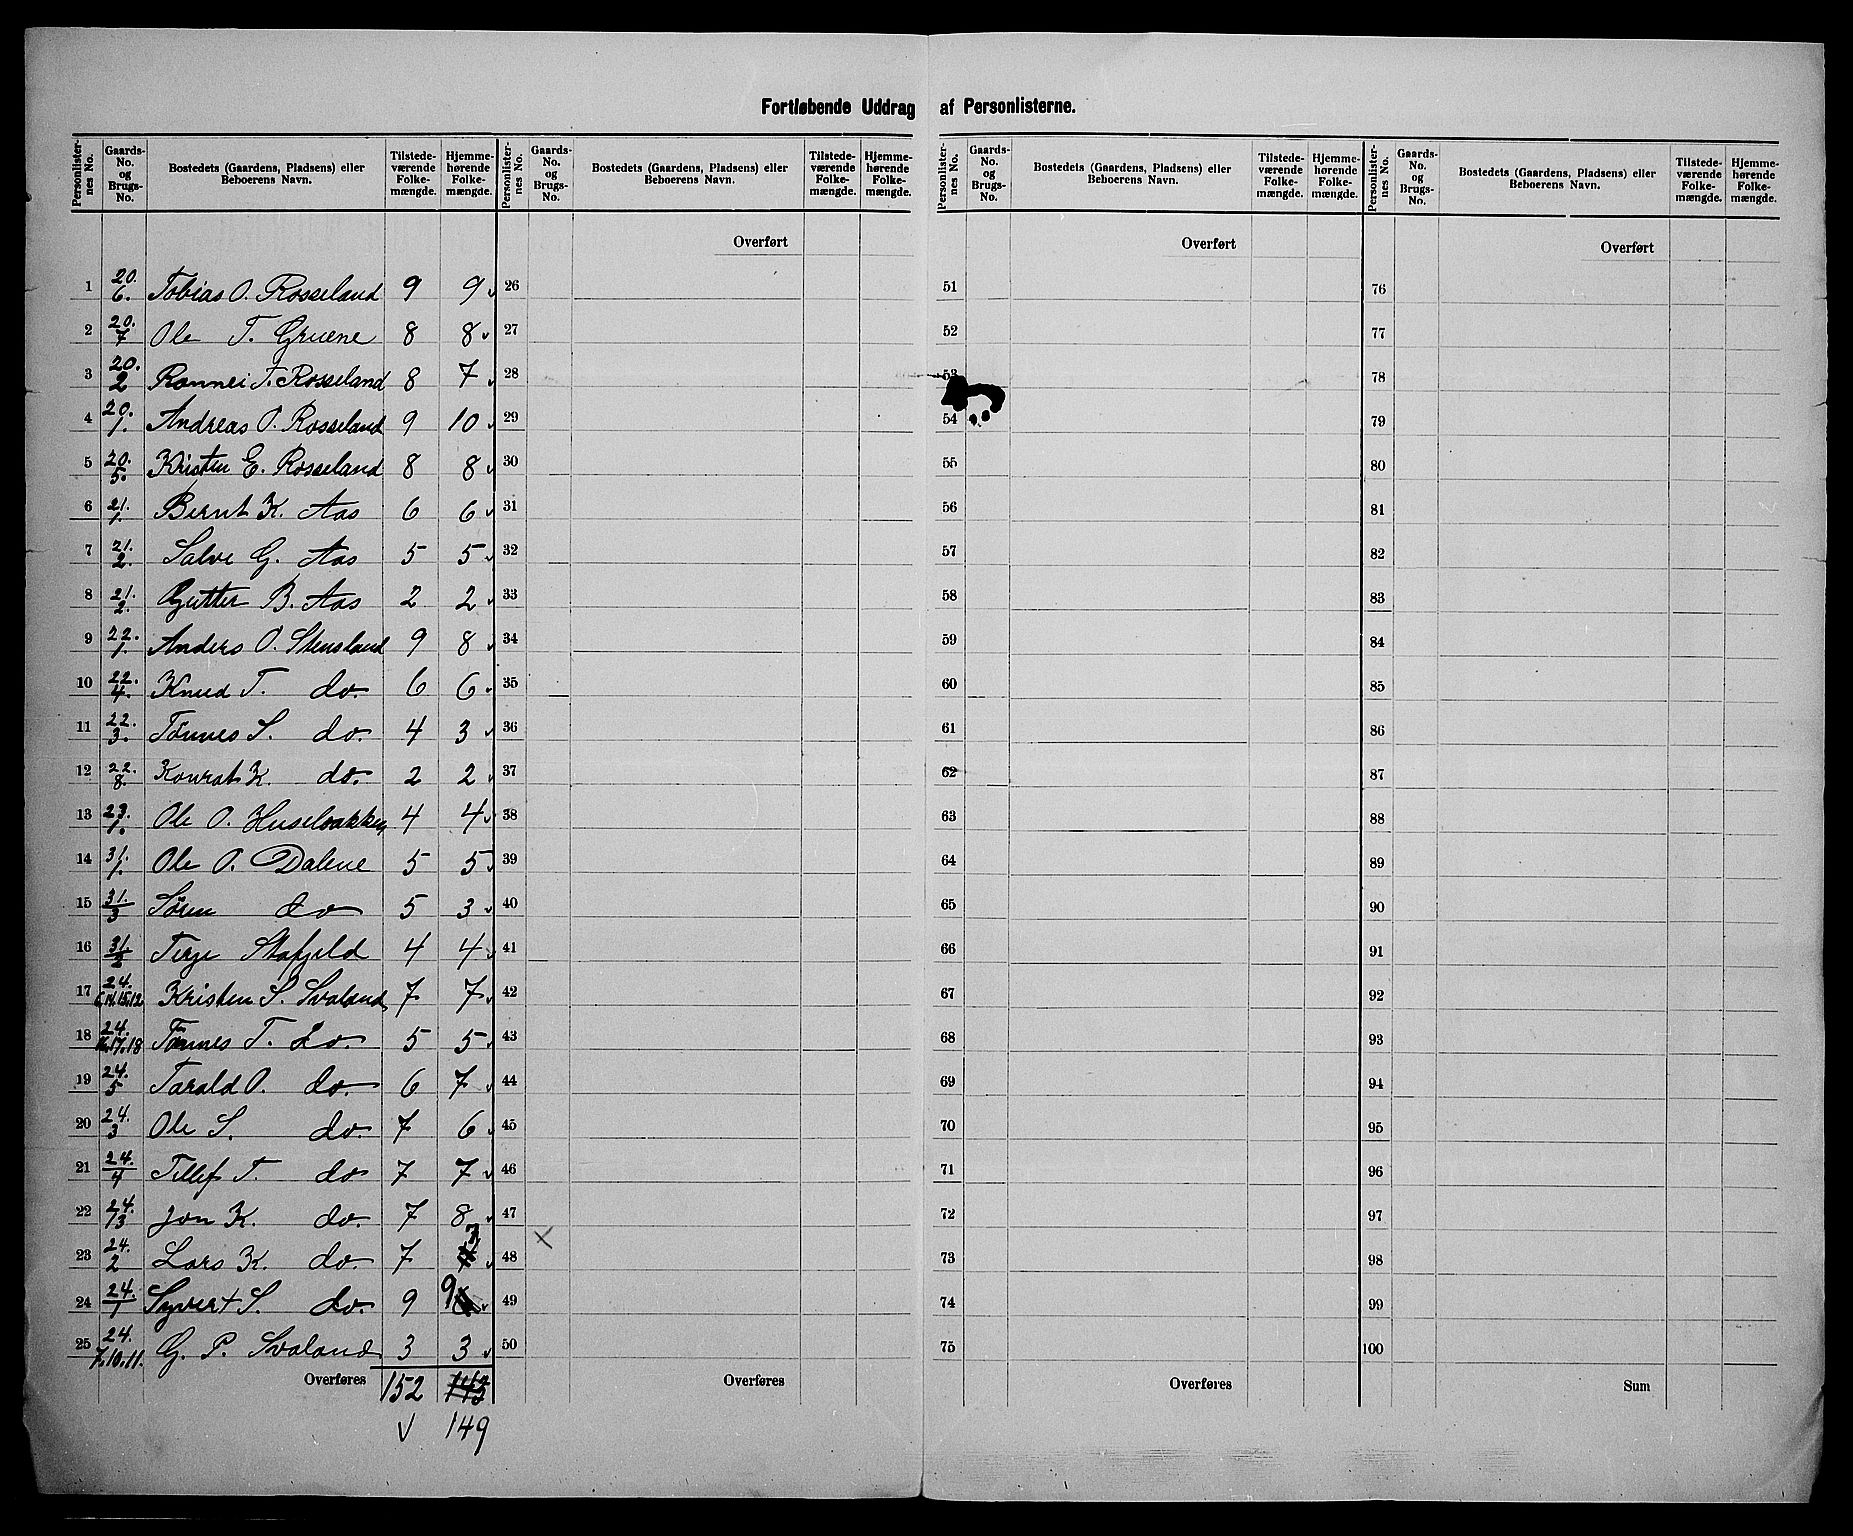 Fortløbende Uddrag af Personlisterne.
Personlisternes No. Gaards-No. og Brugs-No. Bostedets (Gaardens, Pladsens) eller Beboerens Navn. Tilstedeværende Folkemængde. Hjemmehørende Folkemængde.
Personlisternes No. Gaards-No. og Brugs-No. Bostedets (Gaardens, Pladsens) eller Beboerens Navn. Tilstedeværende Folkemængde. Hjemmehørende Folkemængde.
Personlisternes No. Gaards-No. og Brugs-No. Bostedets (Gaardens, Pladsens) eller Beboerens Navn. Tilstedeværende Folkemængde. Hjemmehørende Folkemængde.
Personlisternes No. Gaards-No. og Brugs-No. Bostedets (Gaardens, Pladsens) eller Beboerens Navn. Tilstedeværende Folkemængde. Hjemmehørende Folkemængde.
Overført Overført Overført
1 20./6. Tobias O. Rosseland 9 9 26 51 76
2 20./7 Ole T. Gruene 8 8 27 52 77
3 20./2 Ronnei T. Rosseland 8 7 28 53 78
4 20./1. Andreas O. Rosseland 9 10 29 54 79
5 20./5. Kristen E. Rosseland 8 8 30 55 80
6 21./1. Bernt K. Aas 6 6 31 56 81
7 21./2. Salve G. Aas 5 5 32 57 82
8 21./2. Gutter B. Aas 2 2 33 58 83
9 22./1. Anders O. Stensland 9 8 34 59 84
10 22./4. Knud T. do. 6 6 35 60 85
11 22./3. Tønnes S. do. 4 3 36 61 86
12 22./8. Konrat K. do. 2 2 37 62 87
13 23./1. Ole O. Husebakken 4 4 38 63 88
14 31/1. Ole O. Dalene 5 5 39 64 89
15 31./3 Søren do 5 3 40 65 90
16 31./2 Terje Stafjeld 4 4 41 66 91
17 24./14.15.12 Kristen S. Svaland 7 7 42 67 92
18 24./17.18 Tønnes T. do. 5 5 43 68 93
19 24./5 Tarald O. do. 6 7 44 69 94
20 24./3 Ole S. do. 7 6 45 70 95
21 24./4 Tellef T. do 7 7 46 71 96
22 24./13 Jon K. do. 7 8 47 72 97
23 24./2 Lars K. do. 7 7 48 73 98
24 24./1 Syvert S. do. 9 9 49 74 99
25 24./7.10.11. G. P. Svaland 3 3 50 75 100
Overføres 152 Overføres Overføres Sum
149